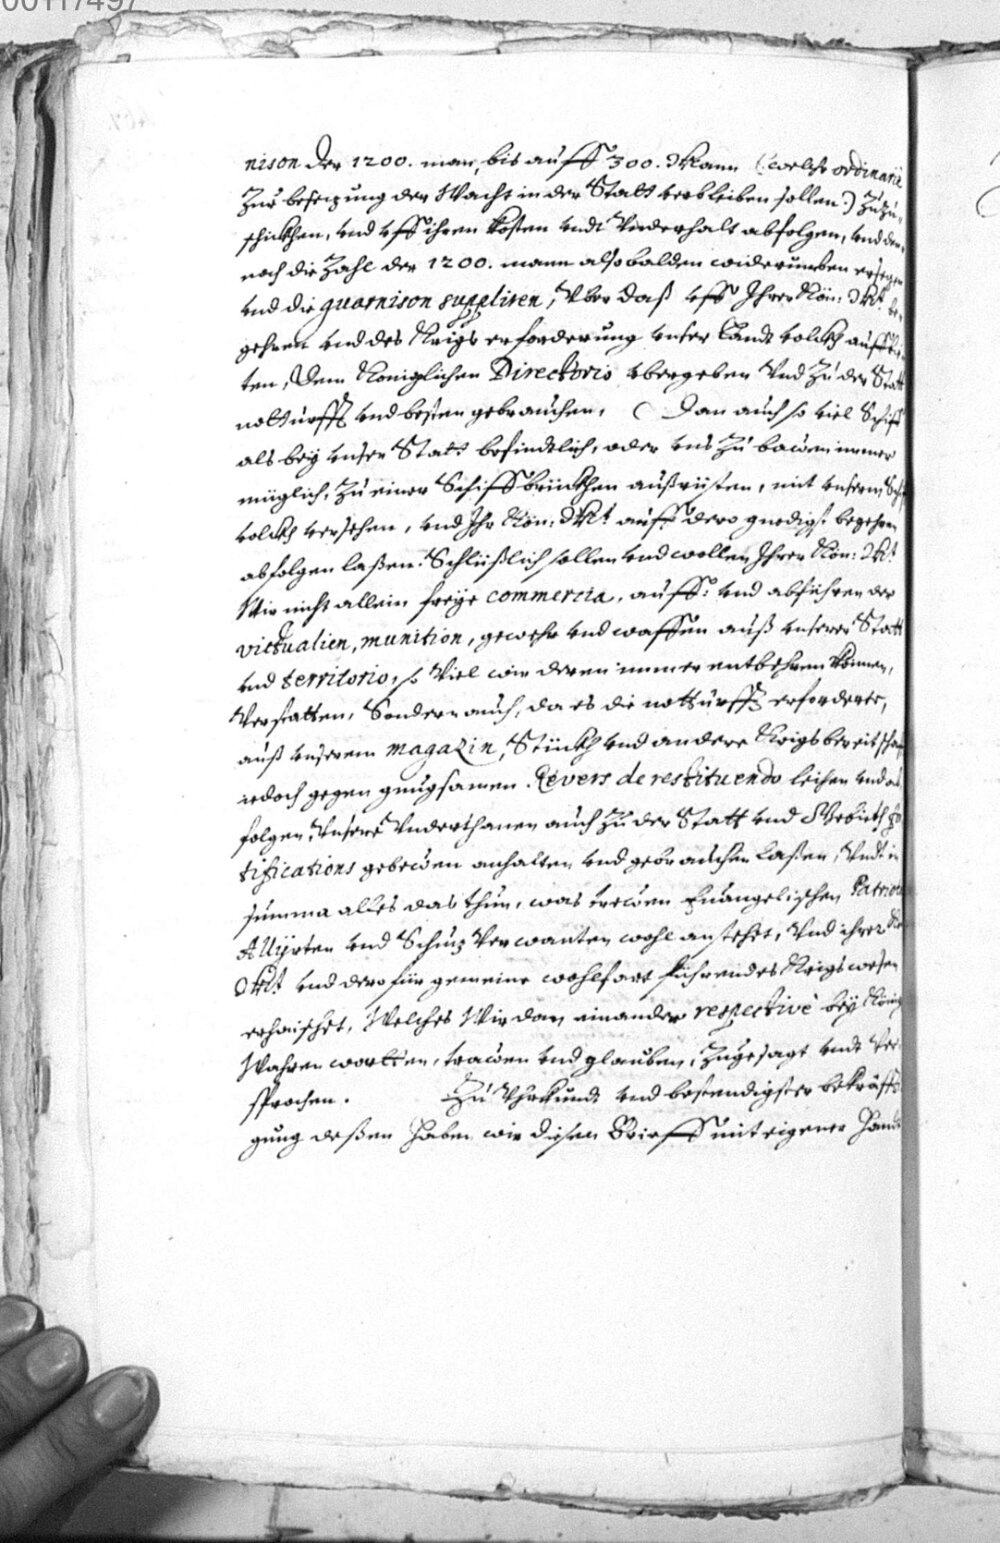 00117497
nison der 1200. man, bis auff 300. Mann (: welche ordinarie
Zur besezung der Wacht in der Statt verbleiben sollen:) Zuzu-
schickhen, vnd vff ihren kosten vndt Vnderhalt abfolgen, vnd den-
noch die Zahl der 1200. mann alsobalden widerumben ersezen
vnd die guarnison suppliren, Vber daß vff Ihrer Kön: Mt. be-
gehren vnd des Krigs erforderung vnser Landt volckh auff
ten, Dem Königlichen Directorio vbergeben Vnd Zu der Statt
notturfft vnd besten gebrauchen. Dan auch so viel Schiff
als bey vnser Statt befindtlich, oder vns Zu bawen immer
müglich, Zu einer Schiffbrückhen außrüsten, mit vnserm
volckh versehen, vnd Ihr Kön: Mt. auff dero gnedigst begehren
abfolgen laßen. Schlüßlich sollen vnd wollen Ihrer Kön: Mt.
Wir nicht allein freye commercia, auff: vnd abführen der
victualien, munition, gewehr vnd waffen auß vnserer Statt
vnd territorio, so Viel wir deren immer entbehren können,
Verstatten, Sondern auch, da es die notturfft erforderte,
auß vnserem magazin, Stückh vnd andere Krigsbereitschafft
iedoch gegen gnugsamen Revers de restituendo leihen vnd ab
folgen, Vnsere Vnderthanen auch Zu der Statt vnd
tifications gebewen anhalten vnd gebrauchen laßen, Vndt in
summa alles das thun, was trewen Euangelischen Patrioten
Allyrten vnd Schuz Verwanten wohl anstehet, Vnd ihrer Kön
Mt. vnd dero für gemeine wohlfart führendes Krigswesen
erhaischet, Welches Wir dan einander respectivè bey König
Wahren wortten, trawen vnd glauben, Zugesagt vndt Ver-
sprochen. Zu Vhrkundt vnd bestendigster bekräffti
gung deßen haben wir diesen Brieff mit eigener Handt